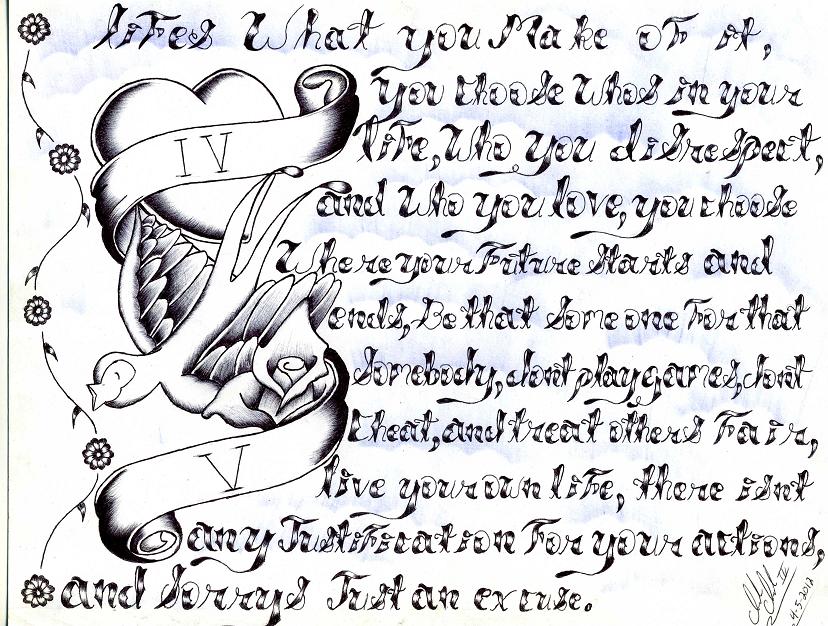 lifes What you Make of it,
you choose whos in your
IV
life, Who you disrespect,
and Who you love, you choose
Where your Future Starts and
ends, Be that Someone For that
Somebody, dont play games, dont
Cheat, and treat others Fair,
V
live your own life, there isnt
any Justification For your actions,
and Sorrys Just an excuse.
4-5-2012